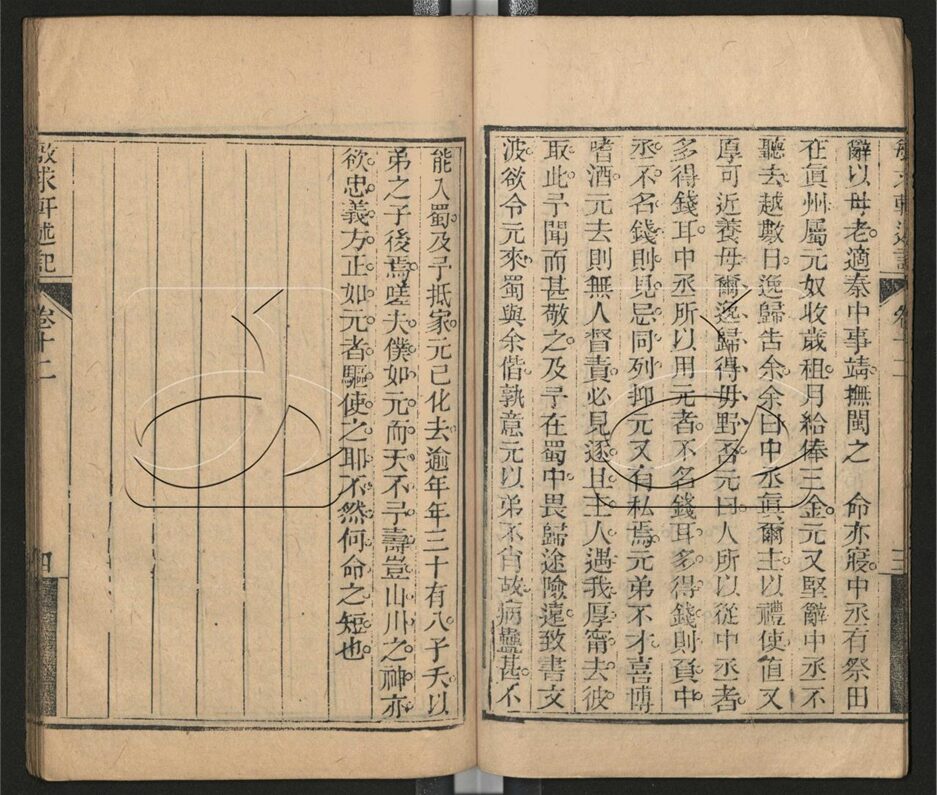 辭以母老適秦中事靖撫閩之　命亦寢中丞有祭田
在真州屬元奴收歲租月給俸三金元又堅辭中丞不
聽去越數日逸歸告余余曰中丞真爾主以禮使值又
厚可近養母爾逸歸得毋野否元曰人所以從中丞者
多得錢耳中丞所以用元者不名錢耳多得錢則負中
丞不名錢則見忌同列抑元又有私焉元弟不才喜博
嗜酒元去則無人督責必見逐且主人遇我厚甯去彼
取此予聞而甚敬之及予在蜀中畏歸途險遠致書文
波欲令元來蜀與余偕孰意元以弟不肖故病蠱甚不
能入蜀及予抵家元已化去逾年年三十有八子夭以
弟之子後焉嗟夫僕如元而天不予壽豈山川之神亦
欲忠義方正如元者驅使之耶不然何命之短也
敬求軒述記
卷十二
四
三